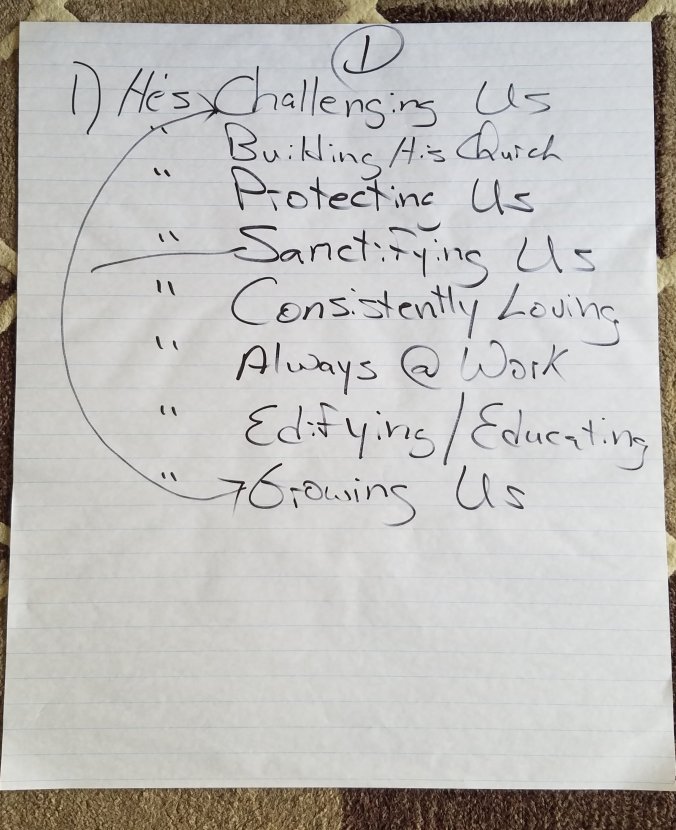 1
1) He's Challenging Us
" Building His Church
" Protecting Us
" Sanctifying Us
" Consistently Loving
" Always @ Work
" Edifying/Educating
" Growing Us